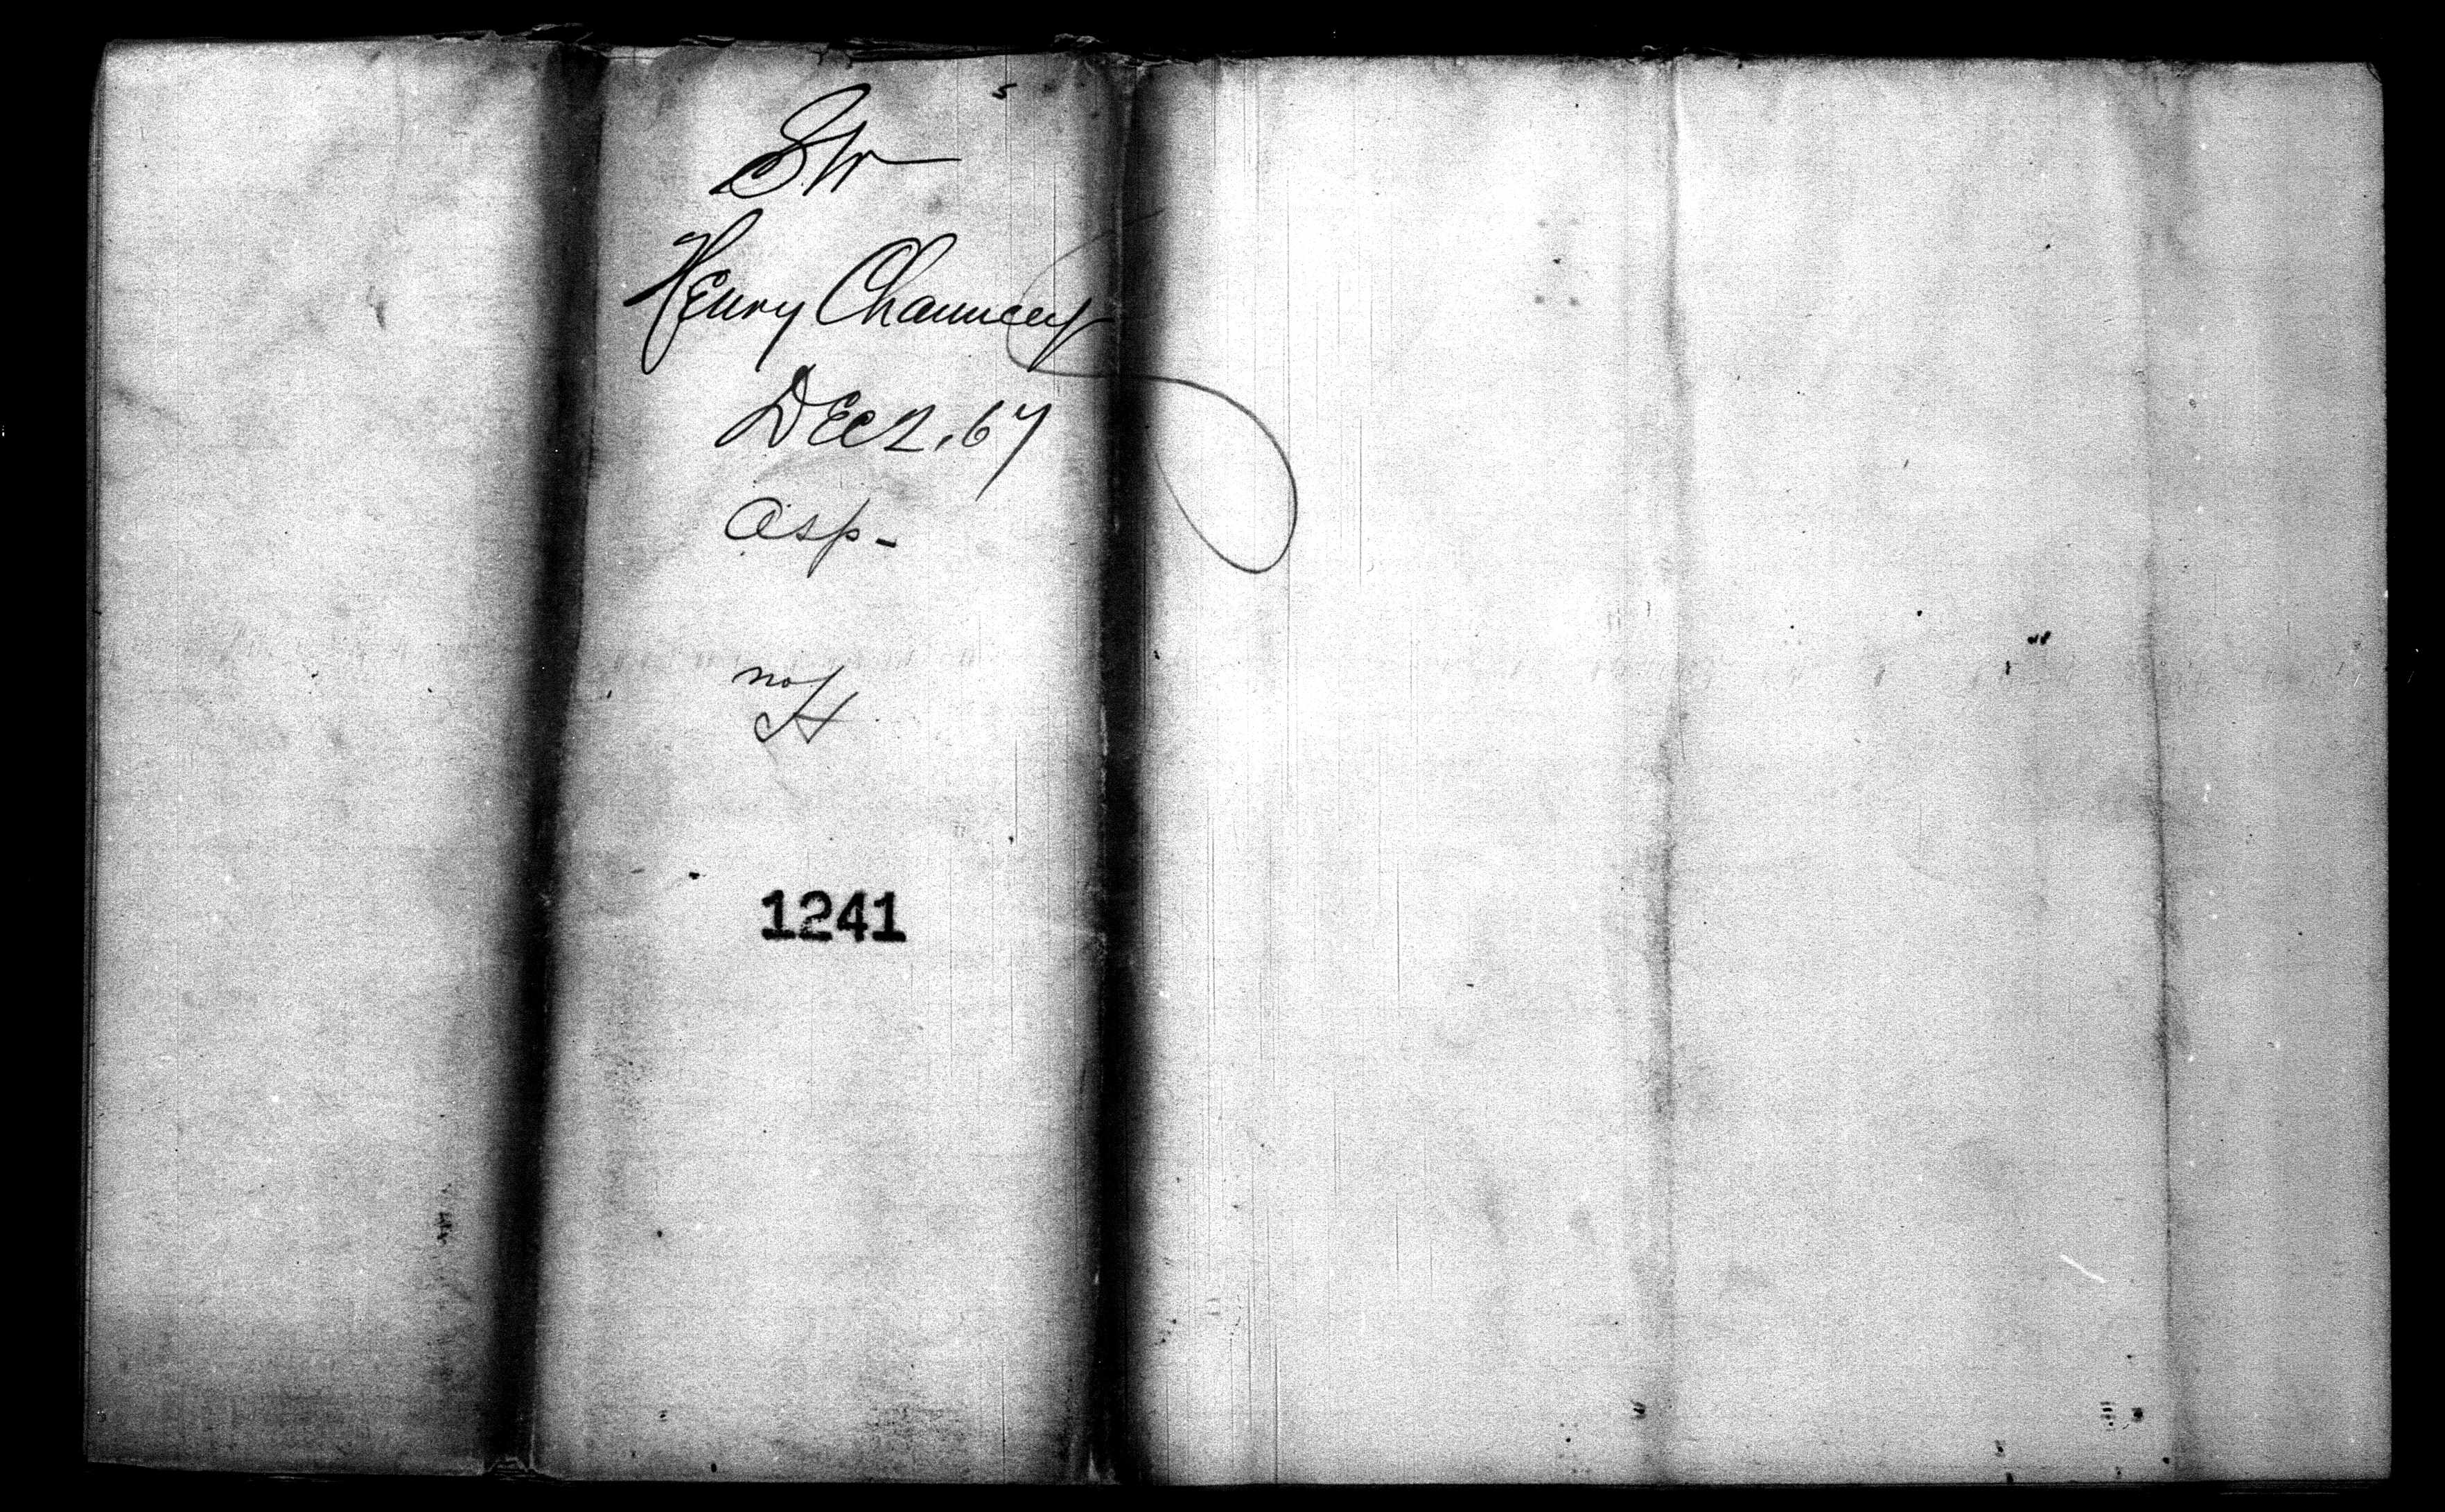 Str
Henry Chauncey
Dec 2, 67
Asp-
no
H
1241